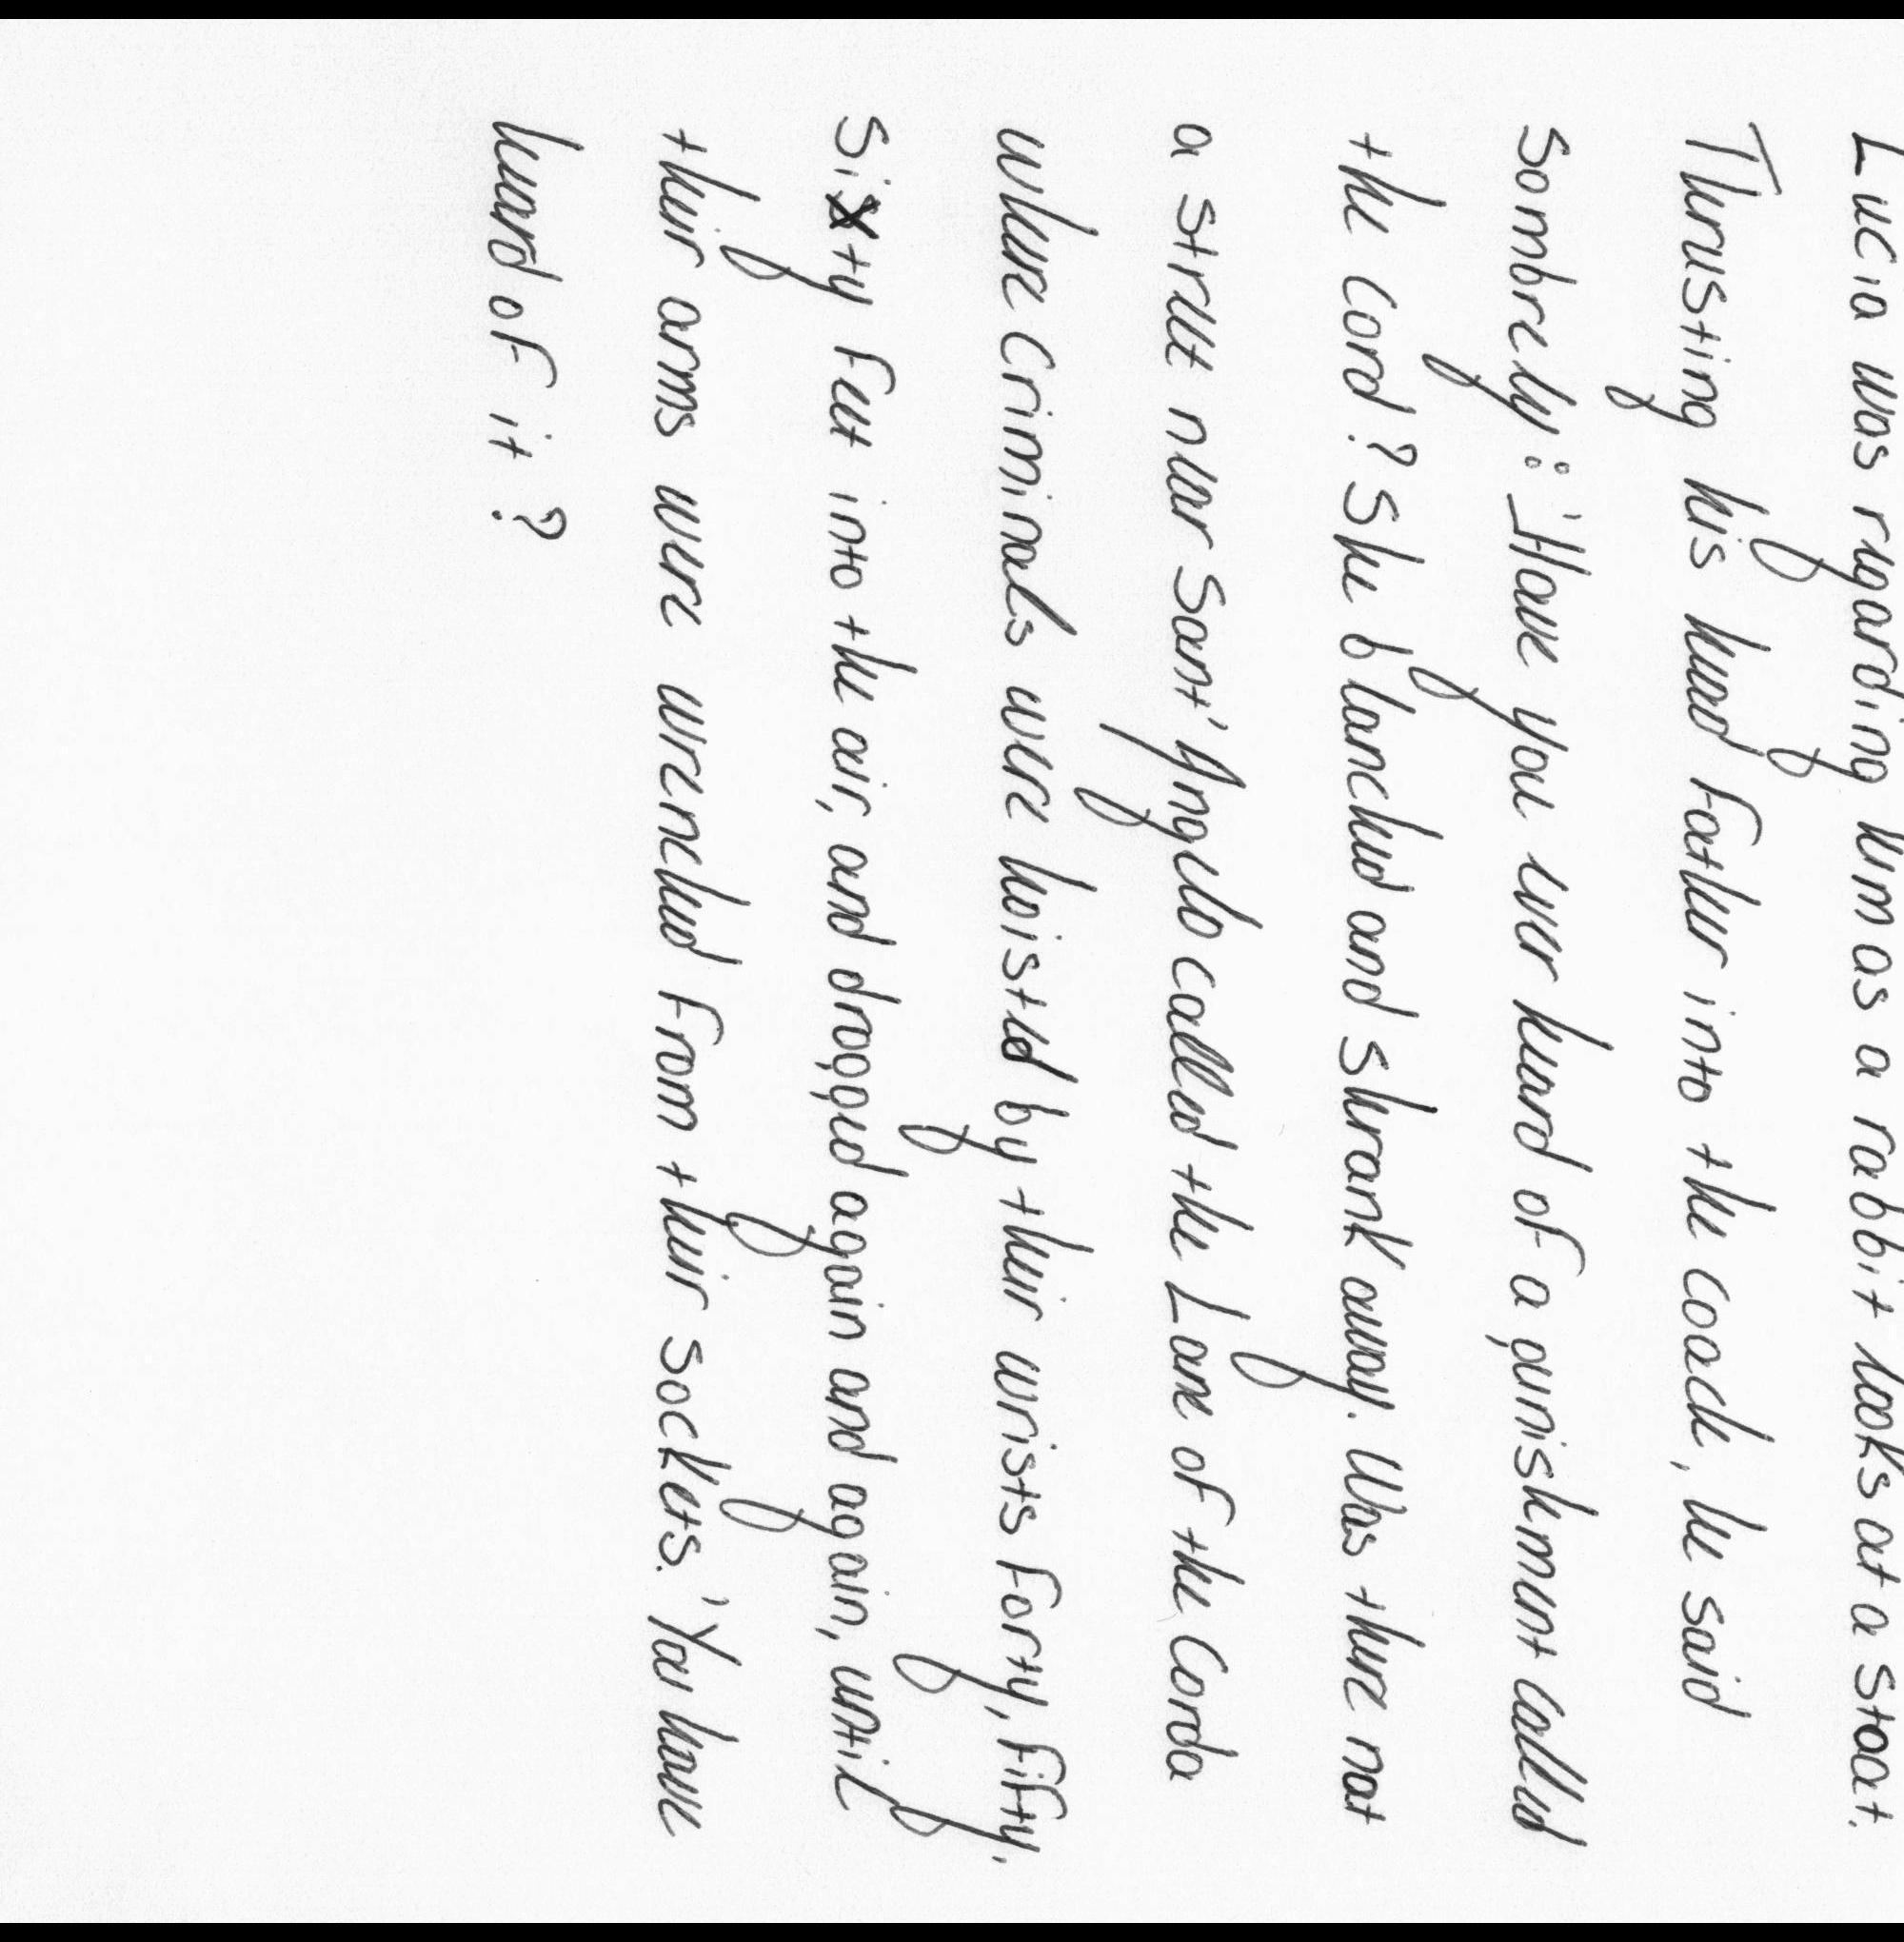 Lucia was regarding him as a rabbit looks at a stoat.
Thrusting his head Father into the coach, he said
sombrely: 'Have you ever heard of a punishment called
the cord? She blanched and shrank away. Was there not
a street near Sant' Angelo called the Lane of the Corda
where Criminals were hoisted by their wrists forty, fifty,
sixty feet into the air, and dropped again and again, until
their arms were wrenched from their sockets. 'You have
heard of it?